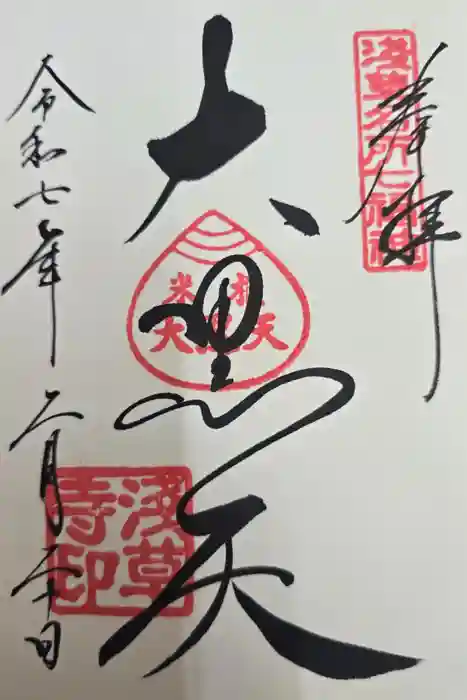 奉拝
浅草名所七福神
大黒天
米村
大黒天
浅草
寺印
令和七年二月二十日